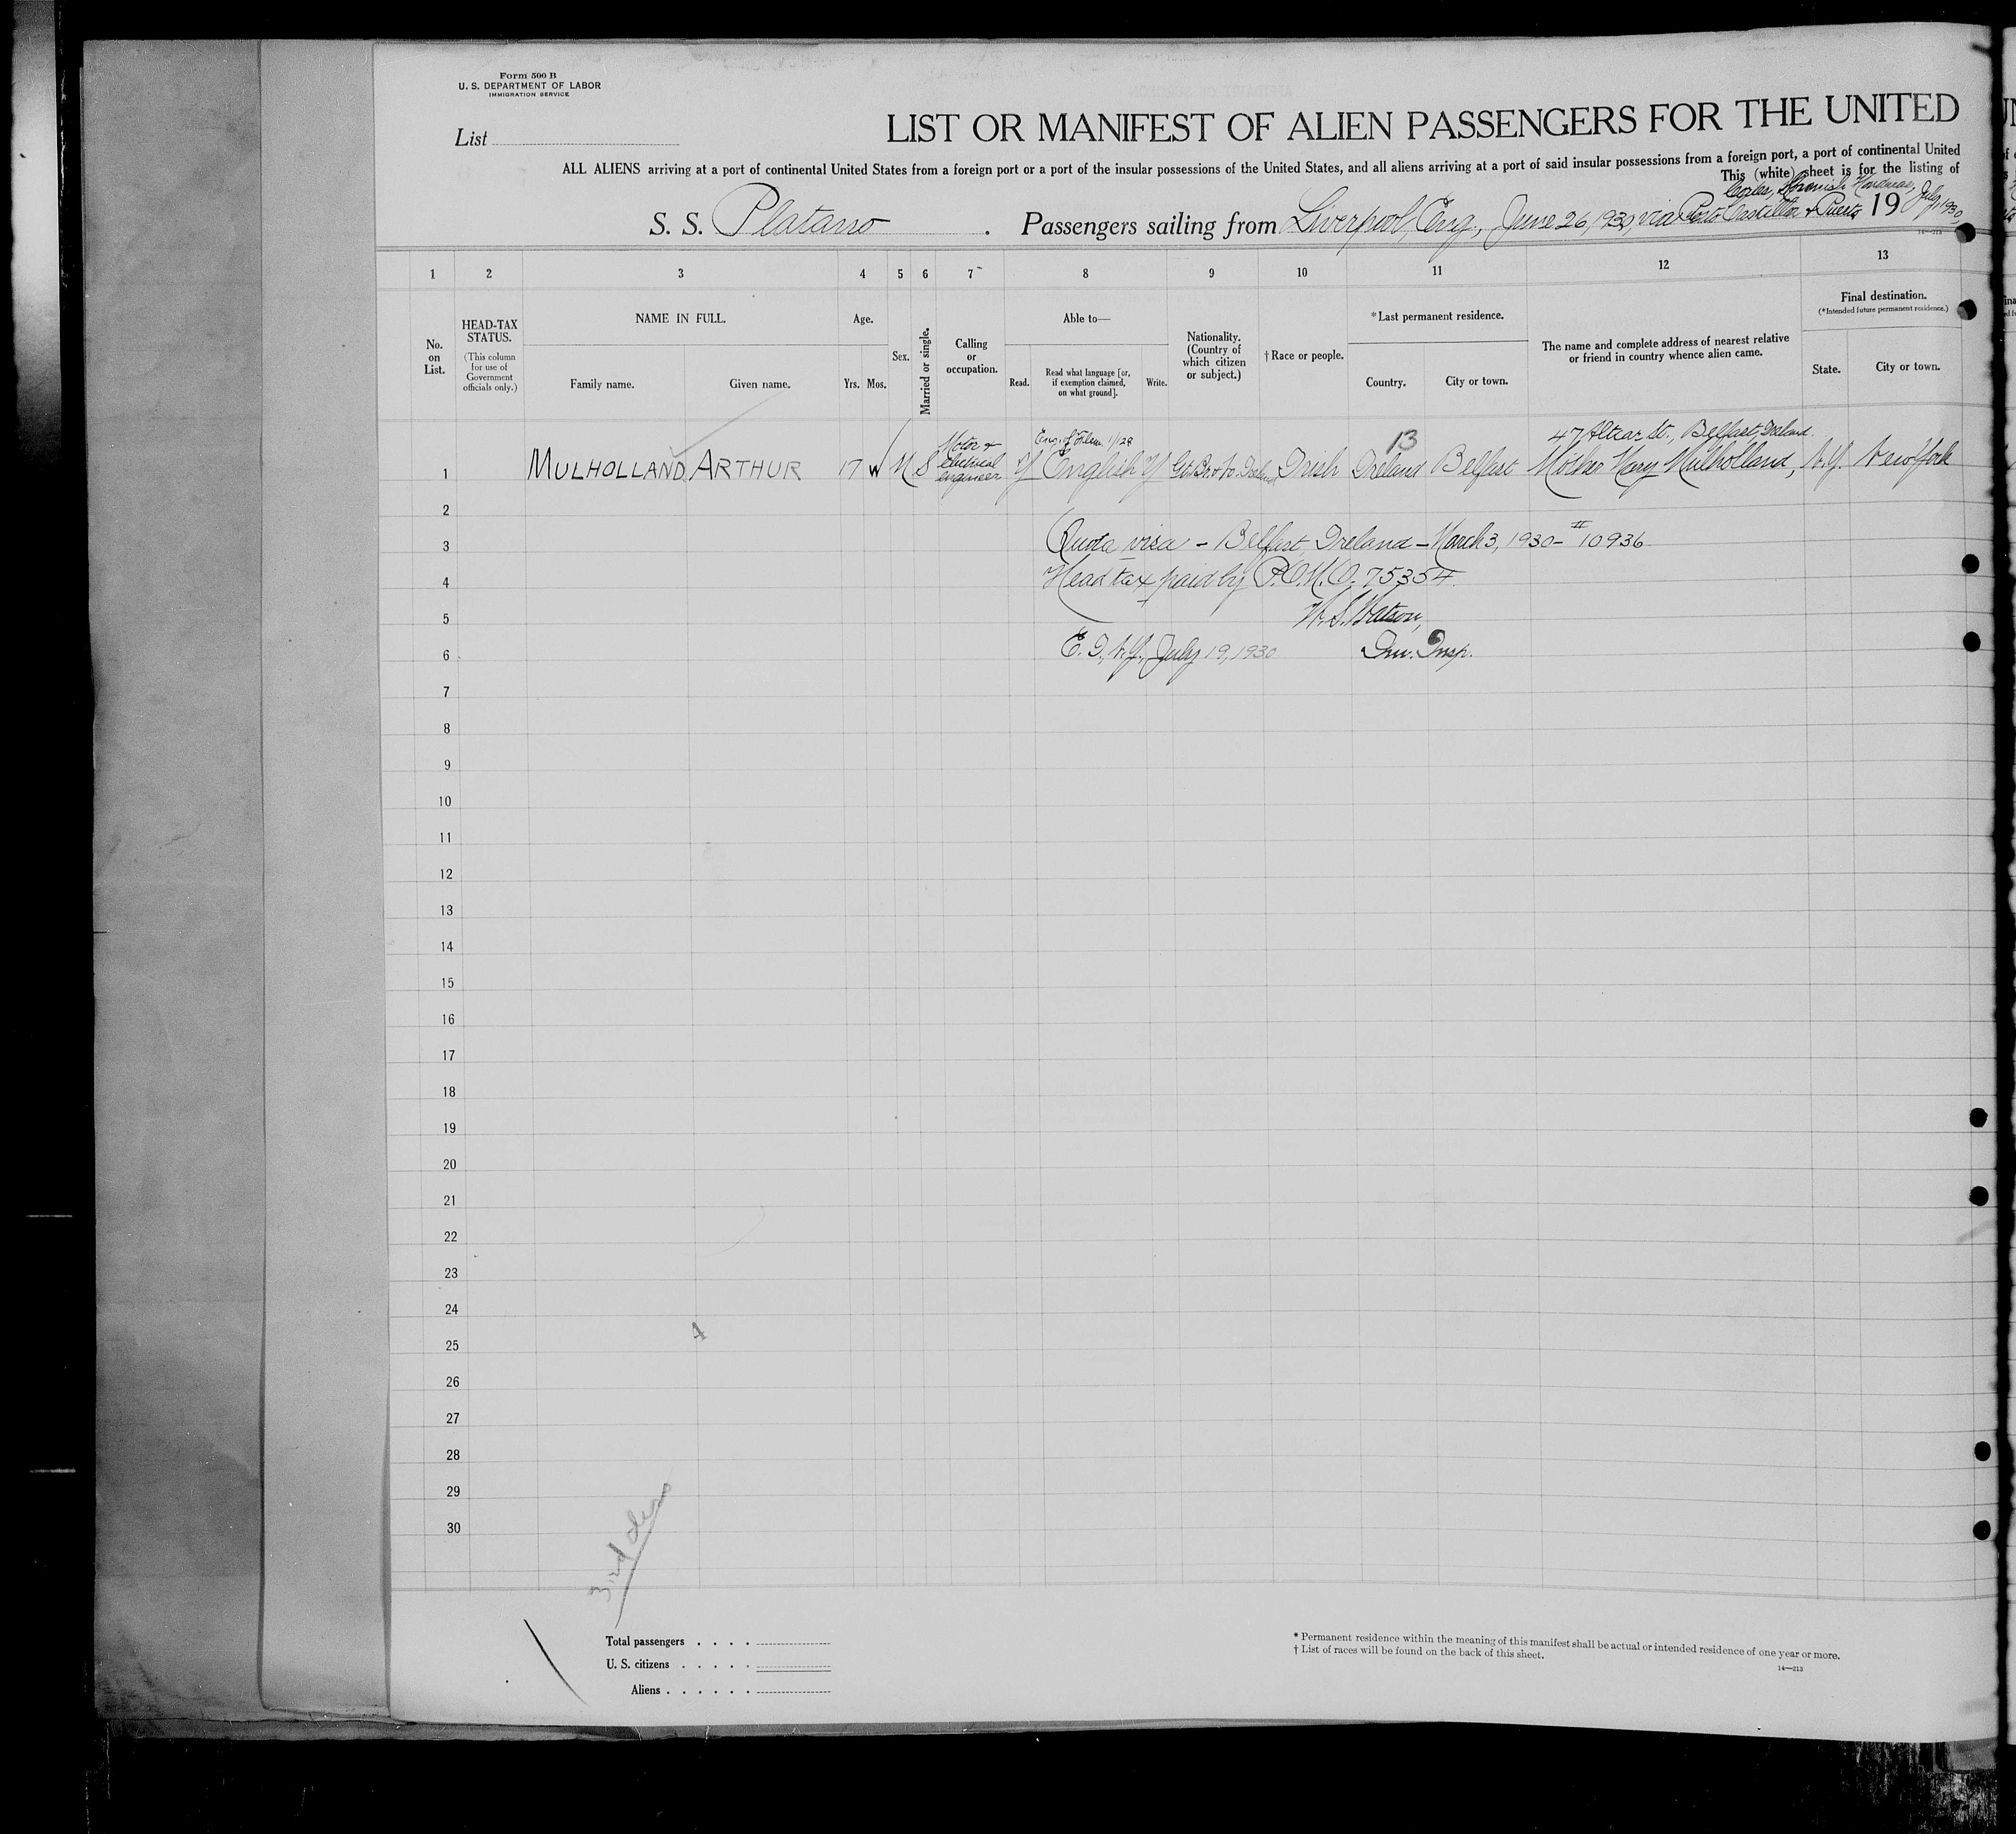 Form 500 B
U. S. DEPARTMENT OF LABOR
IMMIGRATION SERVICE
List
LIST OR MANIFEST OF ALIEN PASSENGERS FOR THE UNITED
ALL ALIENS arriving at a port of continental United States from a foreign port or a port of the insular possessions of the United States, and all aliens arriving at a port of said insular possessions from a foreign port, a port of continental United
This (white) sheet is for the listing of
Spanish Honduras,
S. S. Platano . Passengers sailing from Liverpool, Eng., June 26, 1930, via Puerto Castilla & Puerto 19 July, 1930
1 2 3 4 5 6 7 8 9 10 11 12 13
No. on List.
HEAD-TAX STATUS.
(This column for use of Government officials only.)
NAME IN FULL.
Family name. Given name.
Age.
Yrs. Mos.
Sex.
Married or single.
Calling or occupation.
Able to—
Read. Read what language [or, if exemption claimed, on what ground]. Write.
Nationality. (Country of which citizen or subject.)
† Race or people.
* Last permanent residence.
Country. City or town.
The name and complete address of nearest relative or friend in country whence alien came.
Final destination.
(*Intended future permanent residence.)
State. City or town.
13
47 Altcar St., Belfast, Ireland.
1 MULHOLLAND ARTHUR 17 M S Motor & electrical engineer Y English Y Gt. Br. & N. Ireland Irish Ireland Belfast Mother Mary Mulholland, N.Y. New York
2
3 Quota visa – Belfast, Ireland – March 3, 1930 – 10936
4 Head tax paid by P.O.M.O. 75354
5 W. S. Watson,
6 E. I., N.Y., July 19, 1930 Imm. Insp.
7
8
9
10
11
12
13
14
15
16
17
18
19
20
21
22
23
24
25
26
27
28
29
30
4
Total passengers
U. S. citizens
Aliens
* Permanent residence within the meaning of this manifest shall be actual or intended residence of one year or more.
† List of races will be found on the back of this sheet.
14—213